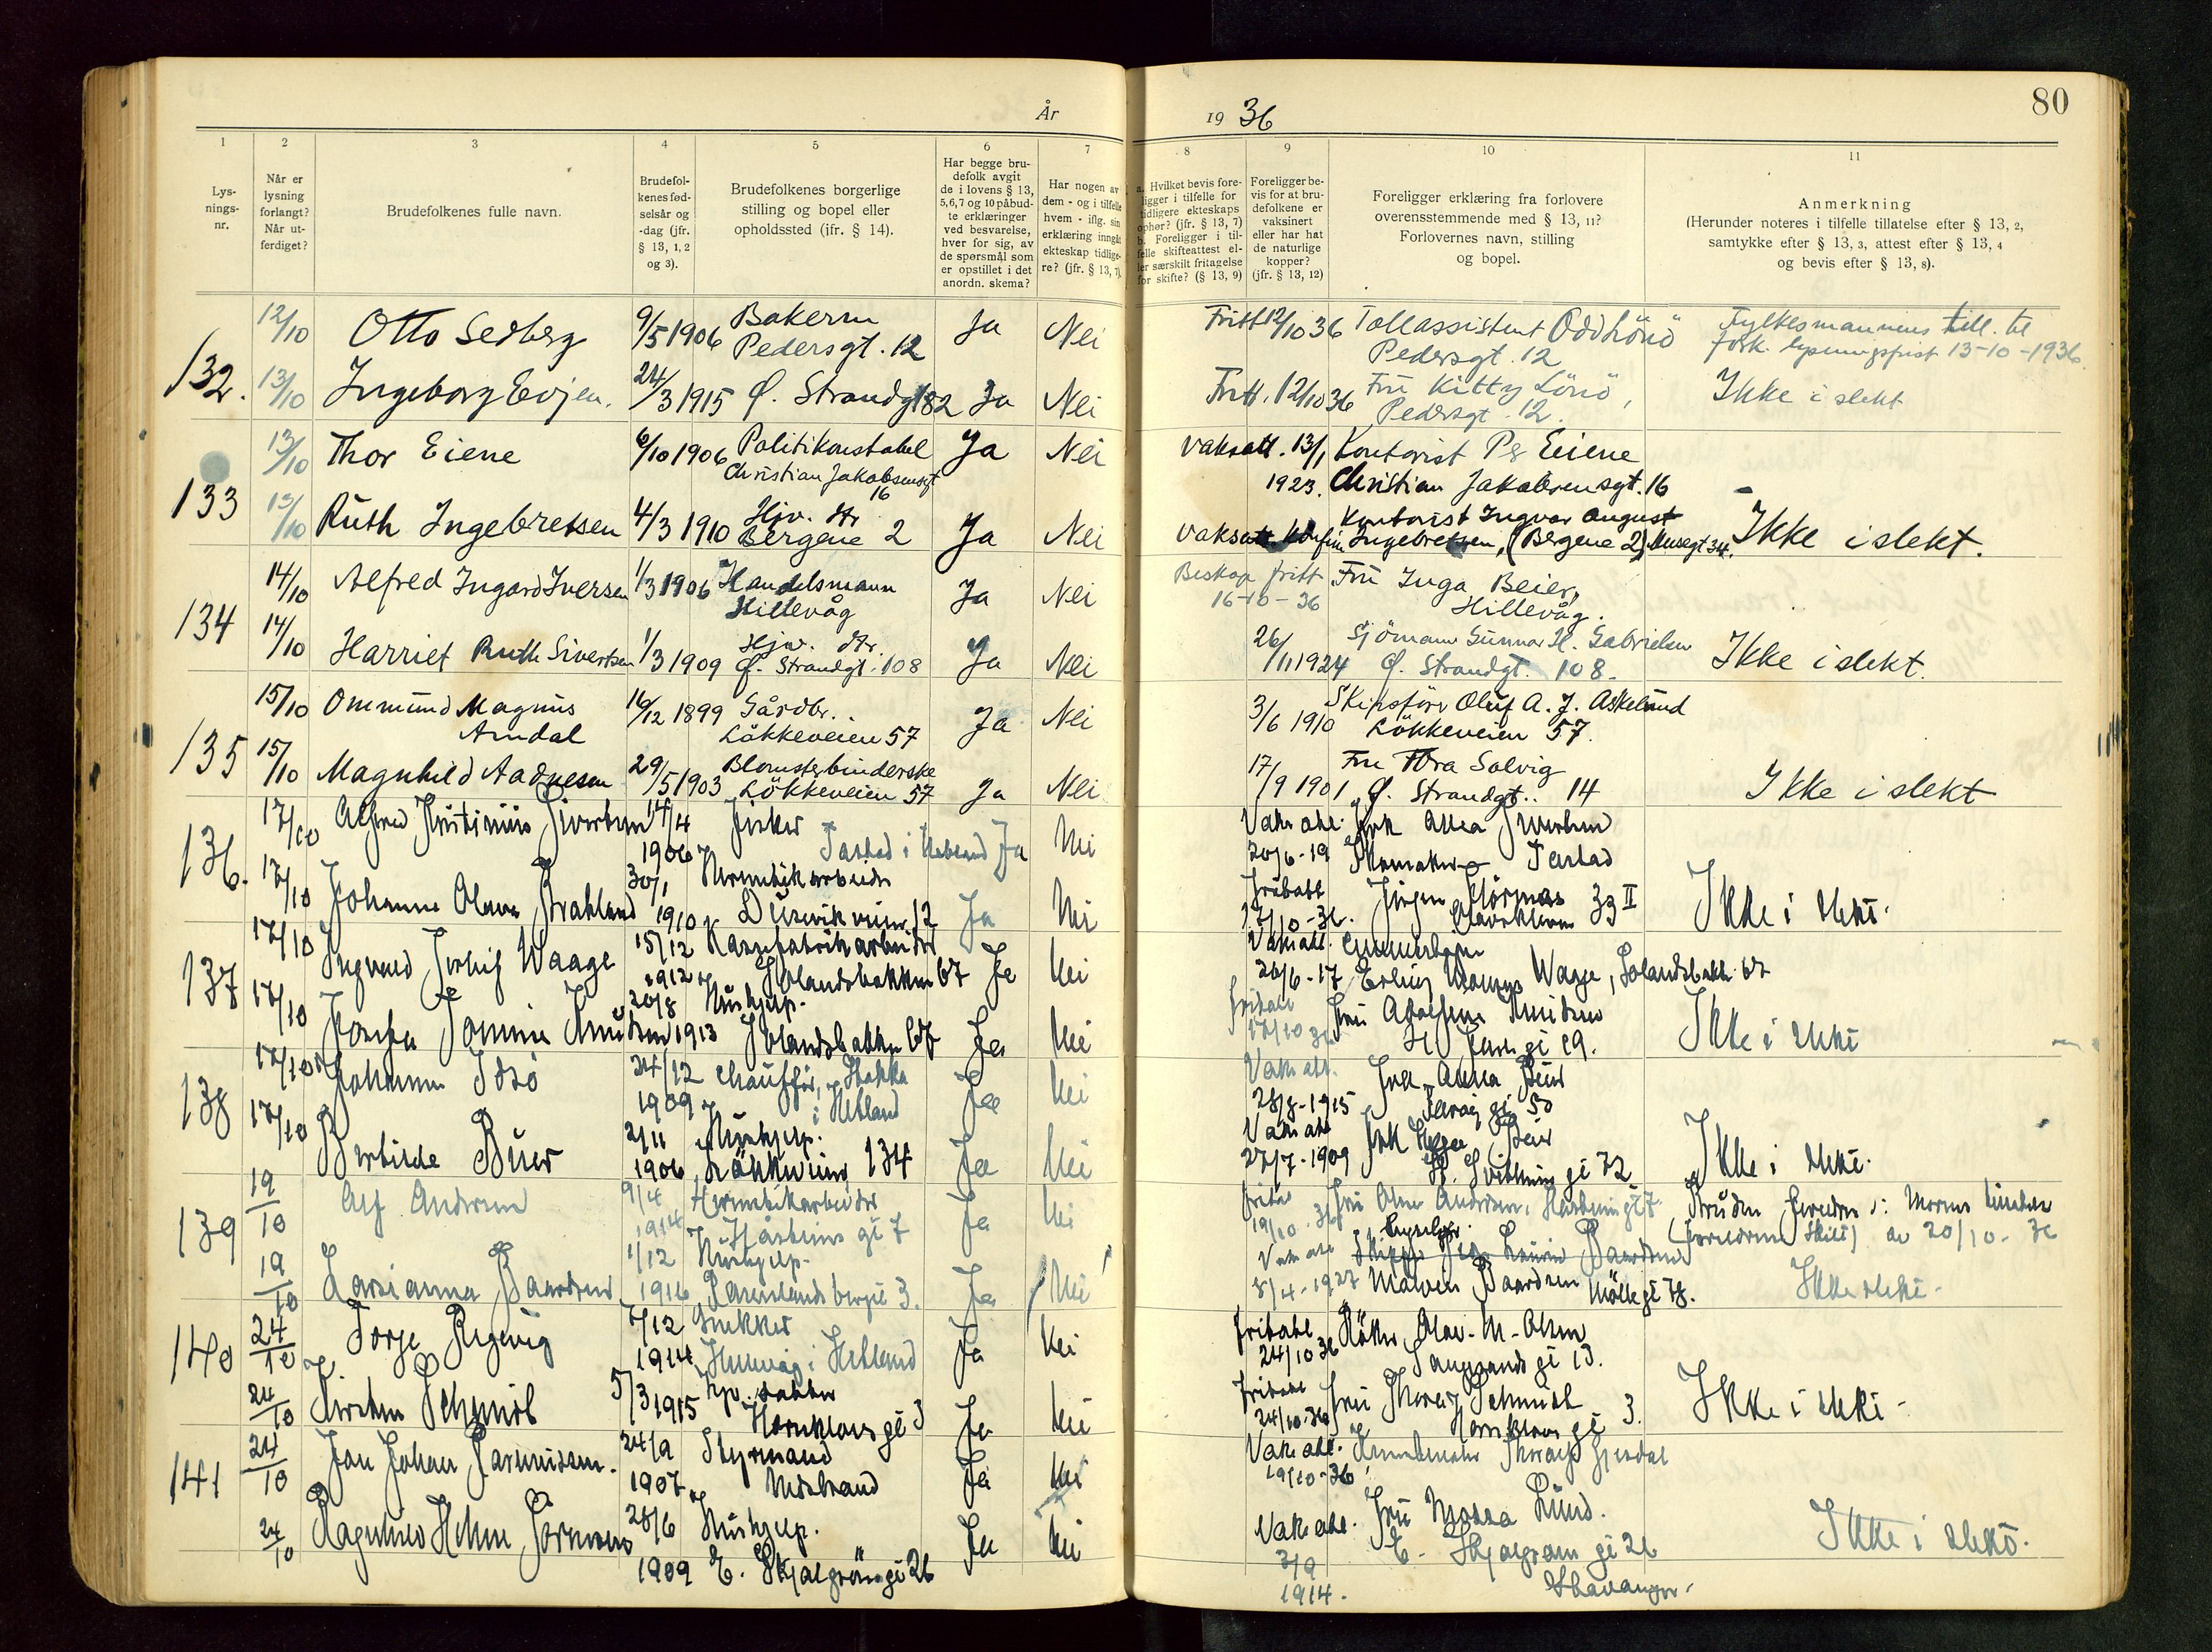 År 1936
80
1 2 3 4 5 6 7 8 9 10 11
Lys-
nings-
nr.
Når er
lysning
forlangt?
Når ut-
ferdiget?
Brudefolkenes fulle navn.
Brudefol-
kenes fød-
selsår og
-dag (jfr.
§ 13, 1, 2
og 3).
Brudefolkenes borgerlige
stilling og bopel eller
opholdssted (jfr. § 14).
Har begge bru-
defolk avgit
de i lovens § 13,
5, 6, 7 og 10 påbud-
te erklæringer
ved besvarelse,
hver for sig, av
de spørsmål som
er opstillet i det
anordn. skema?
Har nogen av
dem - og i tilfelle
hvem - iflg. sin
erklæring inngått
ekteskap tidlige-
re? (jfr. § 13, 7).
a. Hvilket bevis fore-
ligger i tilfelle for
tidligere ekteskaps
ophør? (jfr. § 13, 7)
b. Foreligger i til-
felle skifteattest el-
ler særskilt fritagelse
for skifte? (§ 13, 9)
Foreligger be-
vis for at bru-
defolkene er
vaksinert
eller har hat
de naturlige
kopper?
(jfr. § 13, 12)
Foreligger erklæring fra forlovere
overensstemmende med § 13, 11?
Forlovernes navn, stilling
og bopel.
Anmerkning
(Herunder noteres i tilfelle tillatelse efter § 13, 2,
samtykke efter § 13, 3, attest efter § 13, 4
og bevis efter § 13, 8).
132.
12/10 Otto Sedberg 9/5 1906 Bakersv. Ja Nei Fritt 12/10 36 Tollassistent Odd Lönö Fylkesmannens till. til
Pedersgt. 12 Pedersgt. 12 fork. lysningsfrist 13-10-1936
13/10 Ingeborg Evjen. 24/3 1915 Ø. Strandgt 82 Ja Nei Fritt. 12/10 36 Fru Kitty Lönö, Ikke i slekt
Pedersgt. 12.
133
13/10 Thor Eiene 6/10 1906 Politikonstabel Ja Nei Vaksatt. 13/1 Kontorist Per Eiene
Christian Jakobsensgt 16 1923. Christian Jakobsensgt. 16
13/10 Ruth Ingebretsen 4/3 1910 Hjv. dtr Ja Nei Kontorist Ingvar August
Bergene 2 Vaksatt Konfirm Ingebretsen, (Bergene 2) Musegt 34. Ikke i slekt.
134
14/10 Alfred Ingard Iversen 1/3 1906 Handelsmann Ja Nei Beskop fritt Fru Inga Beier,
Hillevåg 16-10-36 Hillevåg.
14/10 Harriet Ruth Sivertsen 1/3 1909 Hjv. dtr. Ja Nei 26/11 1924 Sjömann Gunnar H. Gabrielsen Ikke i slekt.
Ø. Strandgt. 108 Ø. Strandgt. 108.
135
15/10 Ommund Magnus 16/12 1899 Gårdbr. Ja Nei 3/6 1910 Skipsförer Oluf A. J. Askelund
Arndal Lökkeveien 57 Lökkeveien 57.
15/10 Magnhild Aadnesen 29/5 1903 Blomsterbinderske Ja Nei 17/9 1901 Fru Thora Solvig Ikke i slekt
Lökkeveien 57 Ø. Strandgt.. 14
136.
17/10 Alfred Kristinius Sivertsen 14/4 1906 Fisker Ja Nei Vaksatt. Frk Anna Sivertsen
Tastad i Hetland 20/6-19 Tastad
17/10 Johanne Olava Braaland 30/1 1910 Hermetikkarbeider Ja Nei Fribatt Jörgen Ikke i slekt.
Dusevikveien 12 17/10-36. 33 II
137
17/10 Ingvald Waage 15/12 1912 Kassefabrikarbeider Ja Nei Vaksatt.
Solandsbakken 67 20/6-17 Erling Waage, Solandsbakk. 67
17/10 Jonnie Knudsen 20/8 1913 Hushjelp. Ja Nei Fribatt Fru Knudsen Ikke i slekt
Solandsbakken 67 17/10 36 19.
138
17/10 Johannes Idsö 24/12 1909 Chauffør, Stokka Ja Nei Vaksatt. Frk. Anna Buer
i Hetland 28/8-1915 50
17/10 Bertilde Buer 2/11 1906 Hushjelp. Ja Nei Vaksatt Frk Buer Ikke i slekt.
Lökkeveien 134 27/7-1909 gt 72
139
19/10 Alf Andersen 9/4 1914 Hermetikarbeider Ja Nei Fribatt Fru Andersen, Håsteinsgt 7
Håsteinsgt 7 19/10.36 av 20/10-36
19/10 Larsianna Baardsen 1/12 1916 Hushjelp. Ja Nei Vaksatt Baardsen
3. 8/4-1927 Baardsen Möllegt 78. Ikke slekt.
140
24/10 Torje Rege 7/12 1914 Snekker Ja Nei Fribatt Olav. M. Olsen
Hillevåg i Hetland 24/10 36 gt 13.
24/10 Kirsten Schmidt 5/3 1915 Ja Nei Fribatt Fru Schmidt Ikke i slekt.
Hornklovesgt 3 24/10-36 Hornklovesgt 3.
141
24/10 Jan Johan 24/9 1907 Styrmand Ja Nei Vaksatt. Gjesdal
Midsund 19/10-36
24/10 Ragnhild Helene 28/6 1909 Hushjelp. Ja Nei Vaksatt. Fru Lund. Ikke i slekt.
E. Skjalgsønsgt 26 3/9 1914. E. Skjalgsøns gt 26
Stavanger.